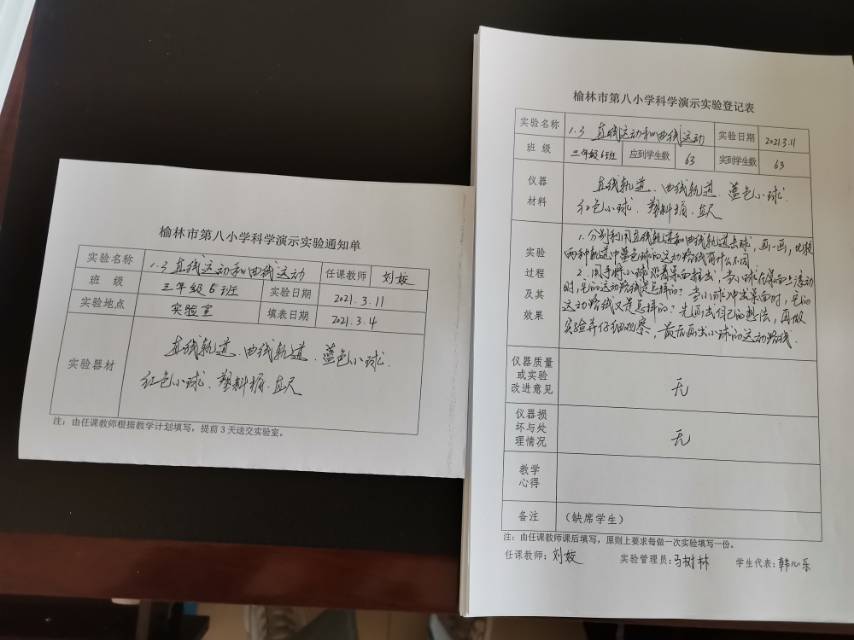 榆林市第八小学科学演示实验通知单
实验名称 1.3 直线运动和曲线运动 任课教师 刘姣
班 级 三年级6班 实验日期 2021.3.11
实验地点 实验室 填表日期 2021.3.4
实验器材 直线轨道、曲线轨道、蓝色小球、
红色小球、塑料桶、直尺
注：由任课教师根据教学计划填写，提前3天送交实验室。
榆林市第八小学科学演示实验登记表
实验名称 1.3 直线运动和曲线运动 实验日期 2021.3.11
班 级 三年级6班 应到学生数 63 实到学生数 63
仪器
材料
直线轨道、曲线轨道、蓝色小球、
红色小球、塑料桶、直尺
实验
过程
及其
效果
1.分别利用直线轨道和曲线轨道 小球，画一画，比较
两种轨道中 色球的运动路线有什么不同
2.用手将小球沿着桌面推出，当小球在桌面上滚动
时，它的运动路线是怎样的？当小球冲出桌面时，它的
运动路线又是怎样的？先画出自己的想法，再做
实验并仔细观察，最后画出小球的运动路线.
仪器质量
或实验
改进意见
无
仪器损
坏与处
理情况
无
教学
心得
备注 （缺席学生）
注：由任课教师课后填写，原则上要求每做一次实验填写一份。
任课教师：刘姣 实验管理员：马树林 学生代表：韩心乐